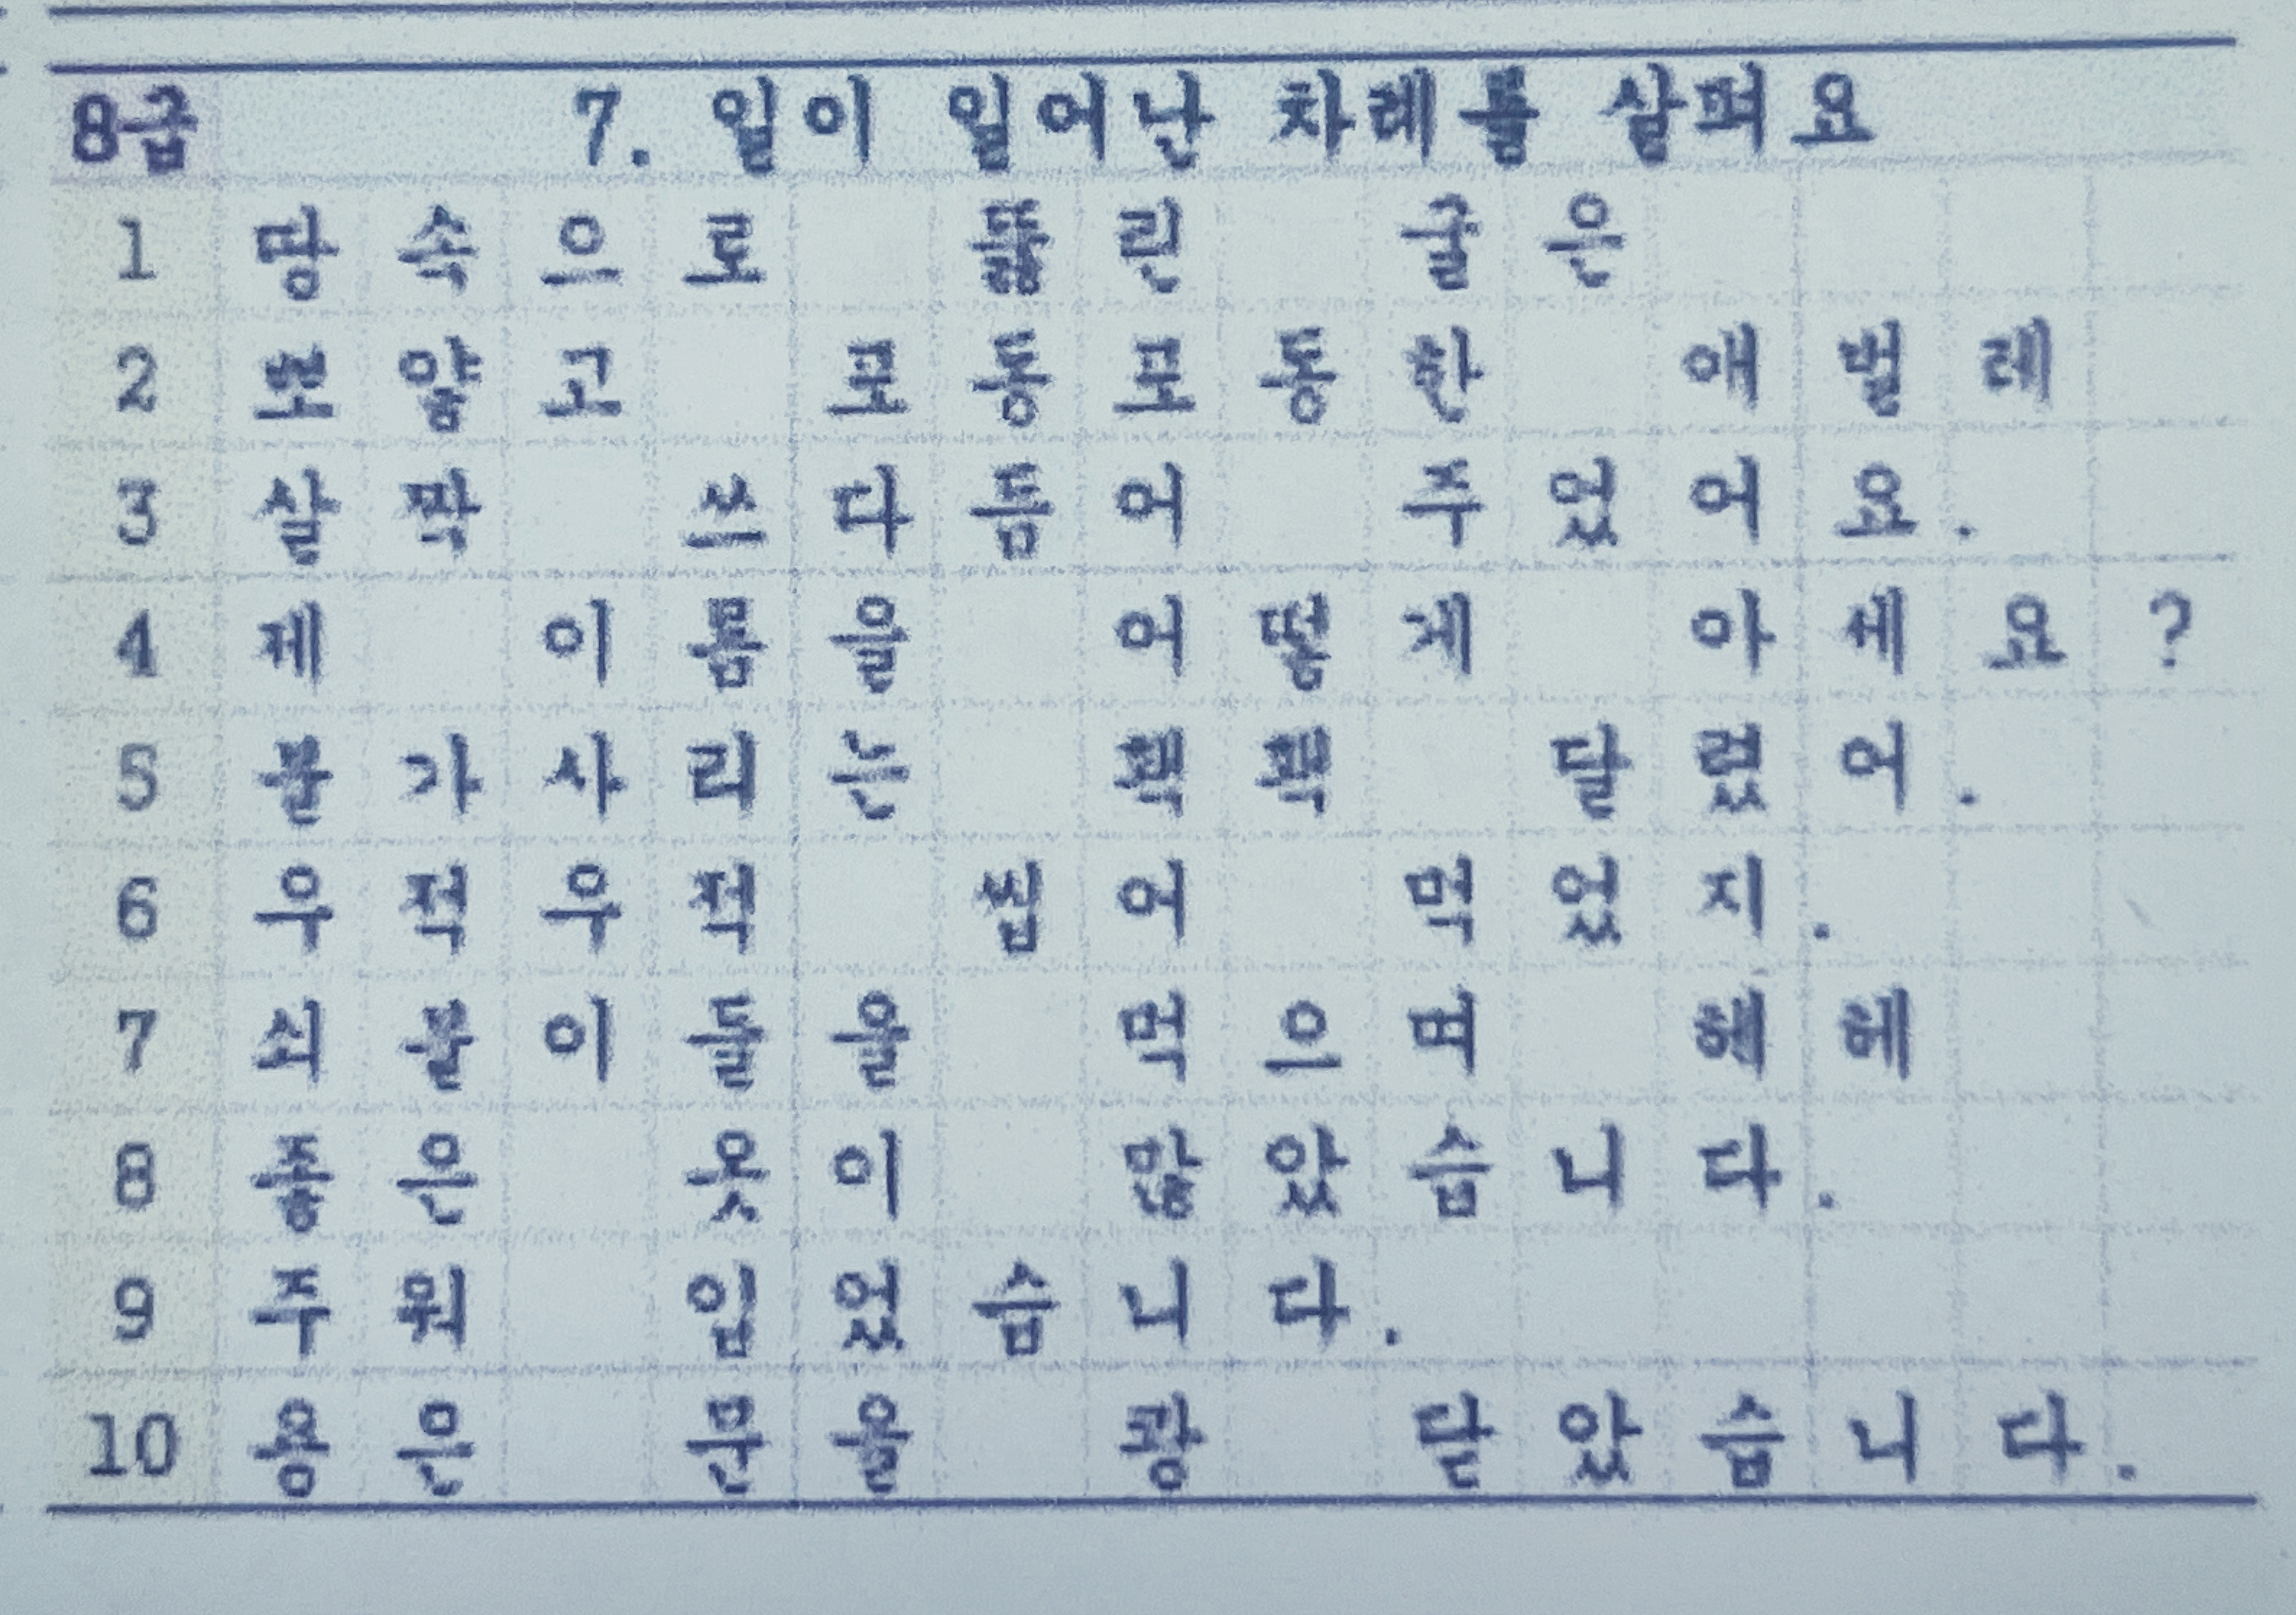 8급 7. 일이 일어난 차례를 살펴요
1 땅속으로 뚫린 굴은
2 뽀얗고 포동포동한 애벌레
3 살짝 쓰다듬어 주었어요.
4 제 이름을 어떻게 아세요?
5 불가사리는 꽥꽥 달렸어.
6 우적우적 씹어 먹었지.
7 쇠붙이들을 먹으며 헤헤
8 좋은 옷이 많았습니다.
9 주워 입었습니다.
10 용은 문을 쾅 닫았습니다.